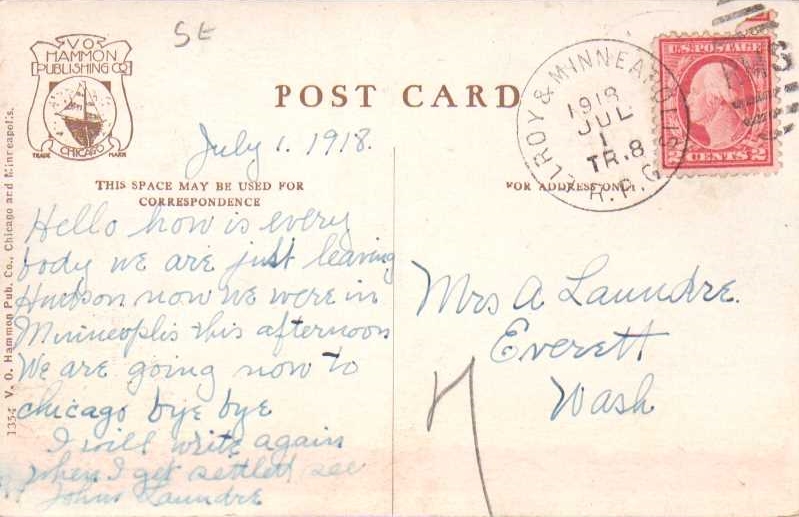 St
V.O.
HAMMON
PUBLISHING CO
TRADE CHICAGO MARK
POST CARD
July 1. 1918.
THIS SPACE MAY BE USED FOR
CORRESPONDENCE
Hello how is every
body we are just leaving
Hudson now we were in
Minneoplis this afternoon
We are going now to
chicago bye bye
I will write again
when I get settled see
John Laundre
1354 V. O. Hammon Pub. Co., Chicago and Minneapolis.
ELROY & MINNEAPOLIS
1918
JUL
1
TR.8
R.P.O.
U.S. POSTAGE
2 CENTS 2
RMS
FOR ADDRESS ONLY
Mrs A Laundre.
Everett
Wash